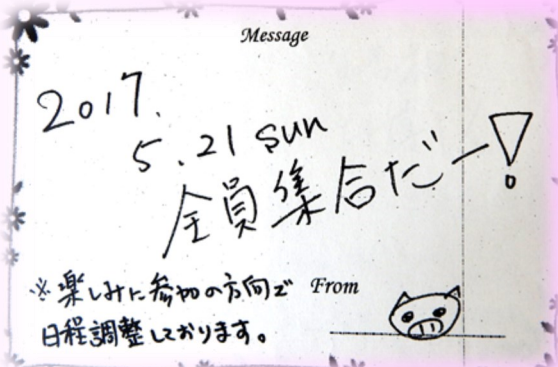 Message
2017.
5.21 sun
全員集合だー!
※楽しみに参加の方向で
日程調整しております。
From